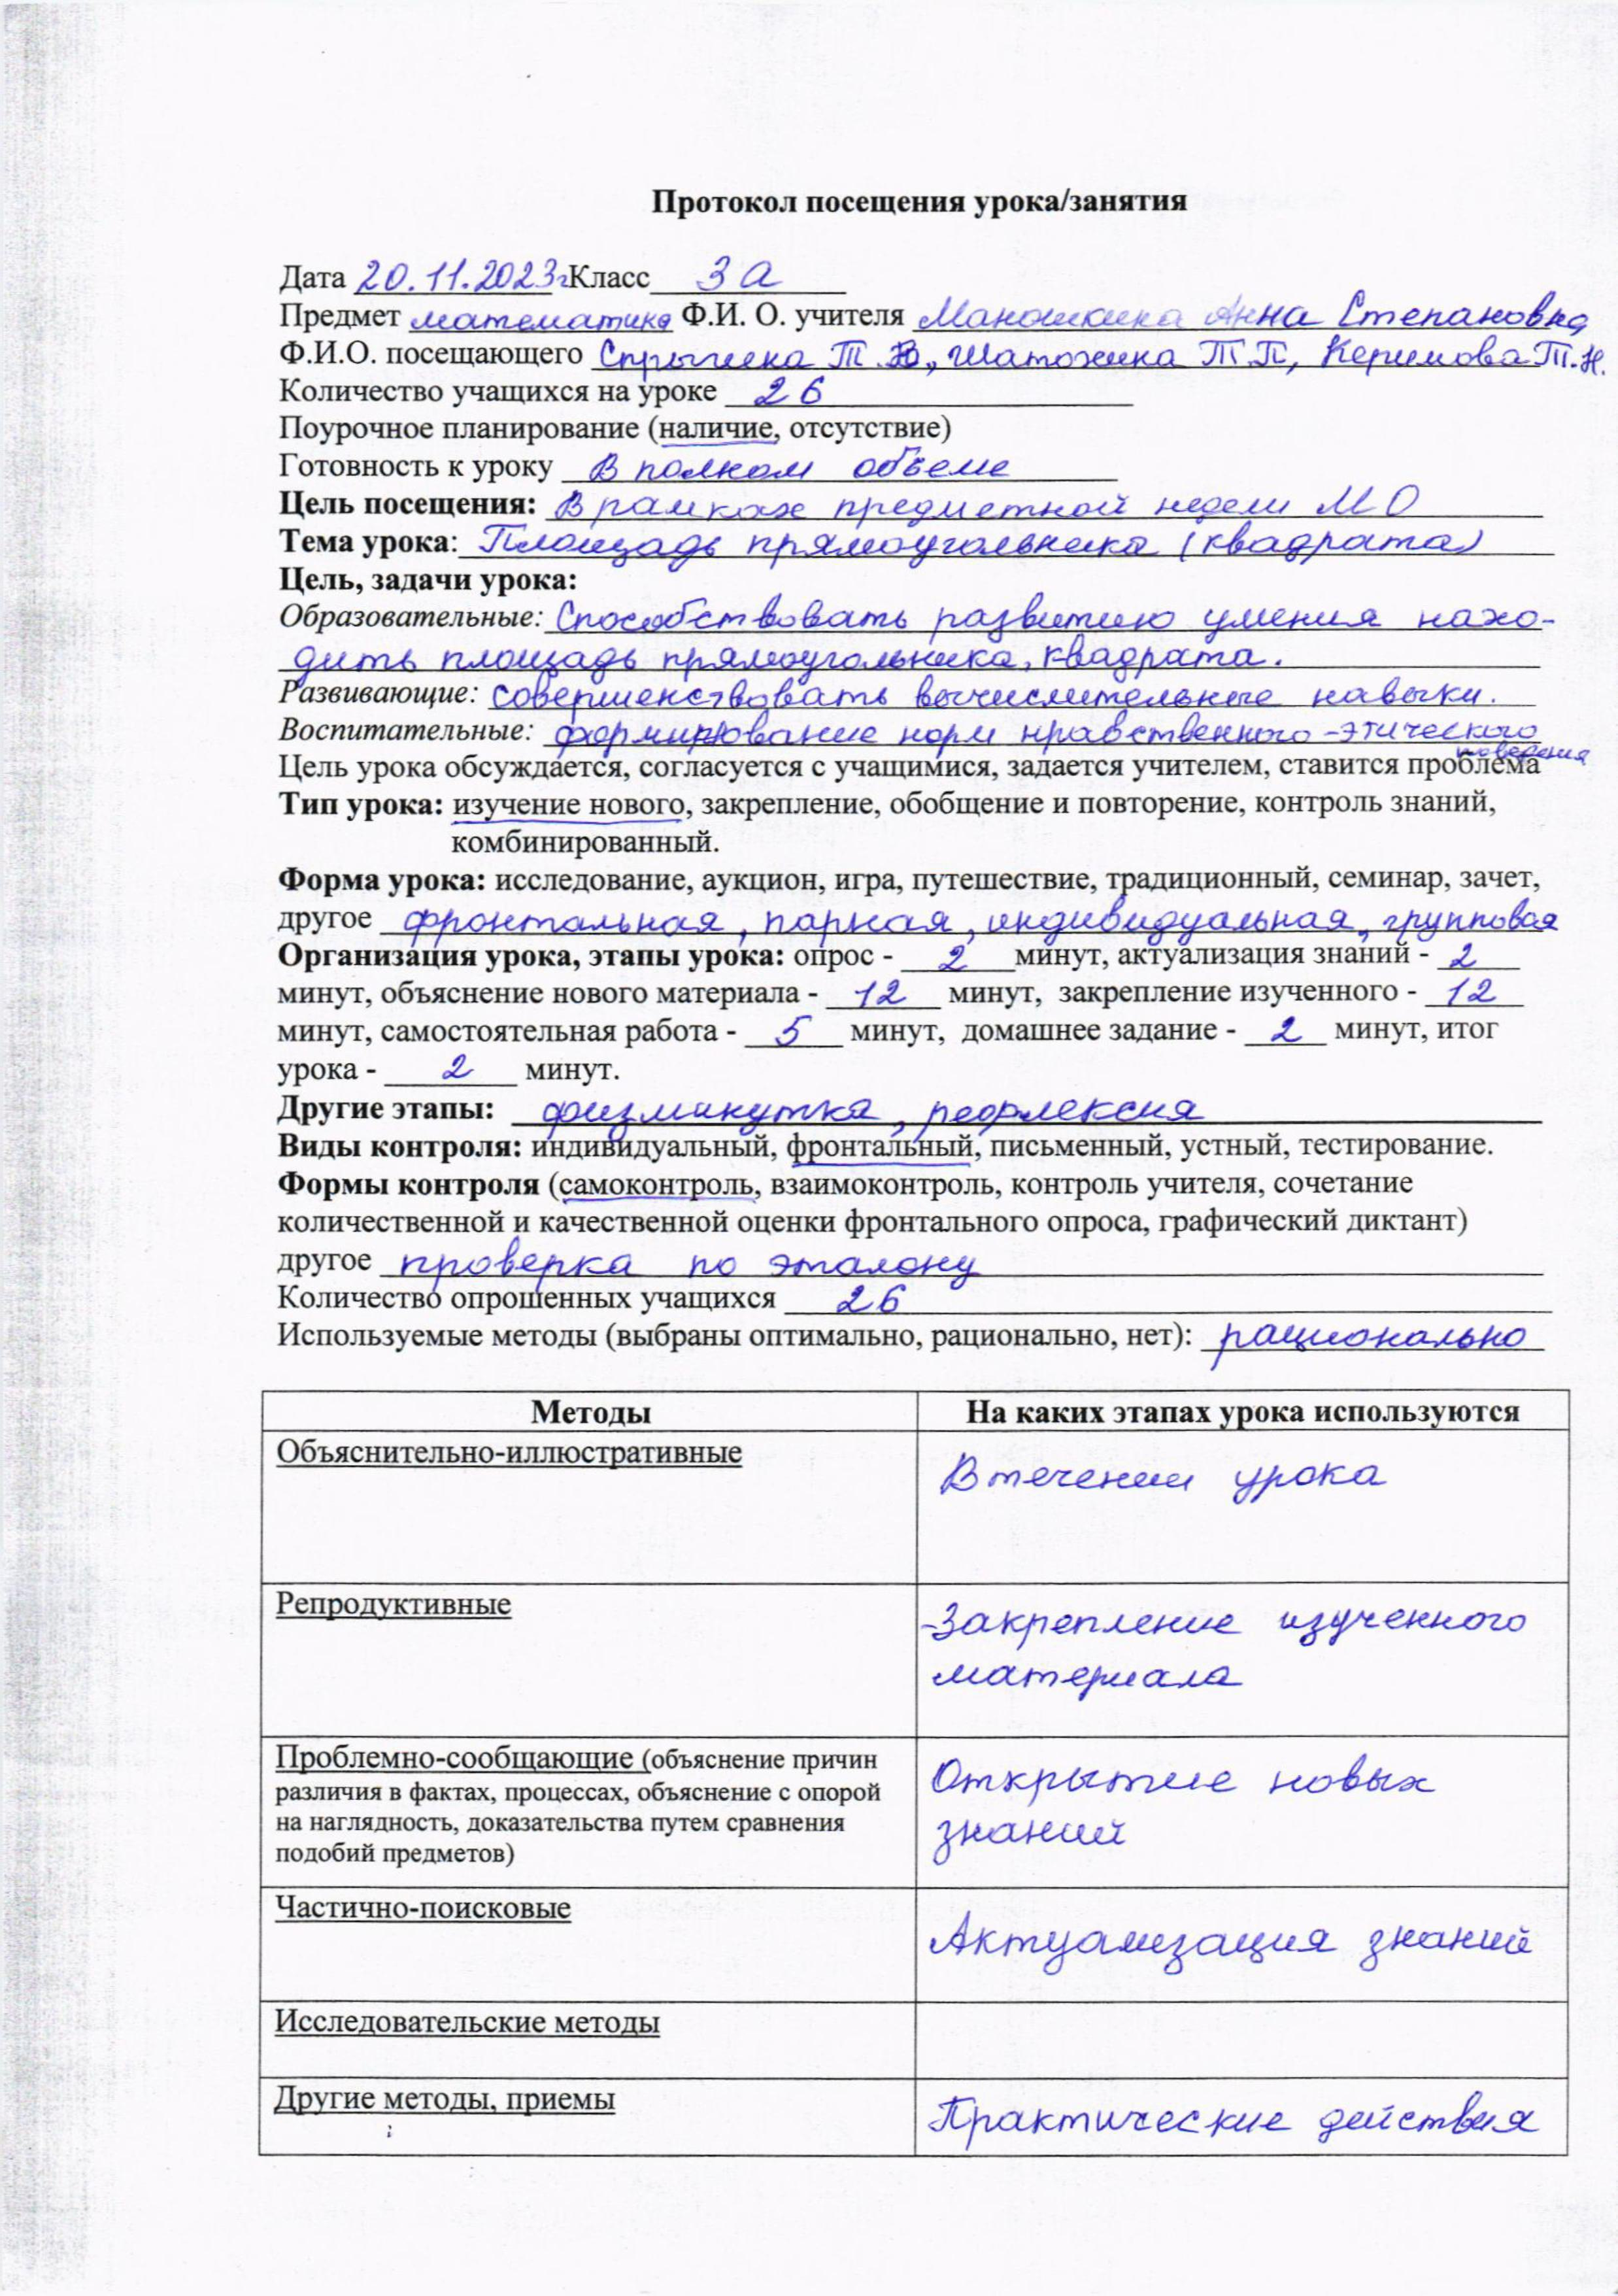 Протокол посещения урока/занятия
Дата 20.11.2023г Класс 3 а
Предмет математика Ф.И. О. учителя Анна Степановна
Ф.И.О. посещающего Т.В., Шатохина Т П, Керимова Т.Н.
Количество учащихся на уроке 26
Поурочное планирование (наличие, отсутствие)
Готовность к уроку В полном объеме
Цель посещения: В рамках предметной недели МО
Тема урока: Площадь прямоугольника (квадрата)
Цель, задачи урока:
Образовательные: Способствовать развитию умения нахо-
дить площадь прямоугольника, квадрата.
Развивающие: совершенствовать вычислительные навыки.
Воспитательные: формирование норм нравственного-этического
поведения
Цель урока обсуждается, согласуется с учащимися, задается учителем, ставится проблема
Тип урока: изучение нового, закрепление, обобщение и повторение, контроль знаний,
комбинированный.
Форма урока: исследование, аукцион, игра, путешествие, традиционный, семинар, зачет,
другое фронтальная, парная, индивидуальная, групповая
Организация урока, этапы урока: опрос - 2 минут, актуализация знаний - 2
минут, объяснение нового материала - 12 минут, закрепление изученного - 12
минут, самостоятельная работа - 5 минут, домашнее задание - 2 минут, итог
урока - 2 минут.
Другие этапы: физминутка, рефлексия
Виды контроля: индивидуальный, фронтальный, письменный, устный, тестирование.
Формы контроля (самоконтроль, взаимоконтроль, контроль учителя, сочетание
количественной и качественной оценки фронтального опроса, графический диктант)
другое проверка по эталону
Количество опрошенных учащихся 26
Используемые методы (выбраны оптимально, рационально, нет): рационально
Методы На каких этапах урока используются
Объяснительно-иллюстративные
В течении урока
Репродуктивные
-Закрепление изученного
материала
Проблемно-сообщающие (объяснение причин
различия в фактах, процессах, объяснение с опорой
на наглядность, доказательства путем сравнения
подобий предметов)
Открытие новых
знаний
Частично-поисковые
Актуализация знаний
Исследовательские методы
Другие методы, приемы
Практические действия